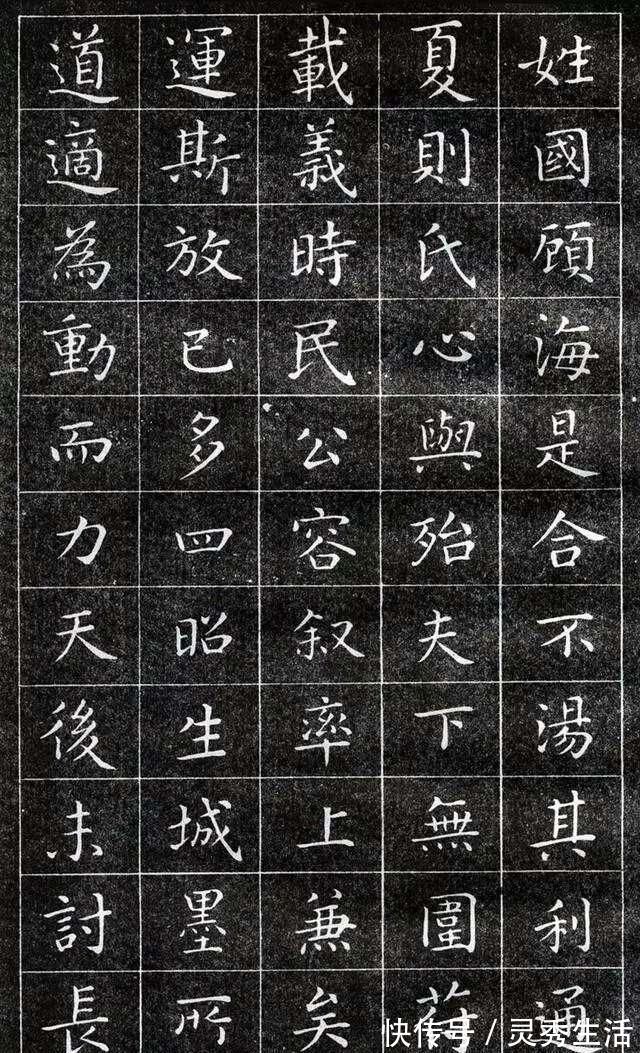 姓國頋海是合不湯其利通
夏則氏心與殆夫下無圍
載義時民公容叙率上兼矣
運斯放已多四昭生城墨所
道適為動而力天後未討長
快传号/灵秀生活